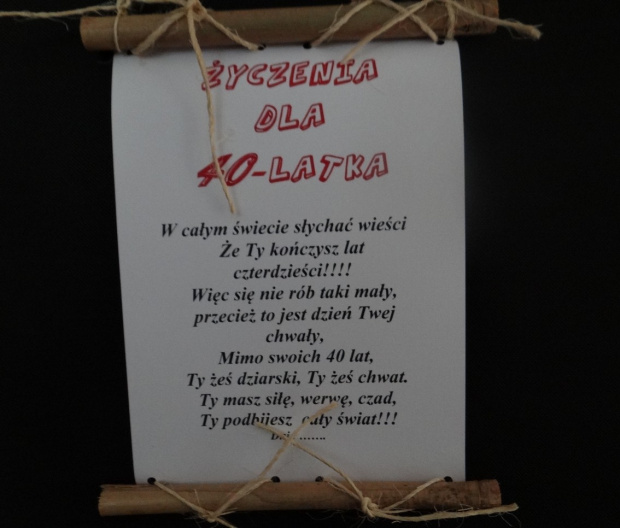 ŻYCZENIA
DLA
40-LATKA
W całym świecie słychać wieści
Że Ty kończysz lat
czterdzieści!!!!
Więc się nie rób taki mały,
przecież to jest dzień Twej
chwały,
Mimo swoich 40 lat,
Ty żeś dziarski, Ty żeś chwat.
Ty masz siłę, werwę, czad,
Ty podbijesz cały świat!!!